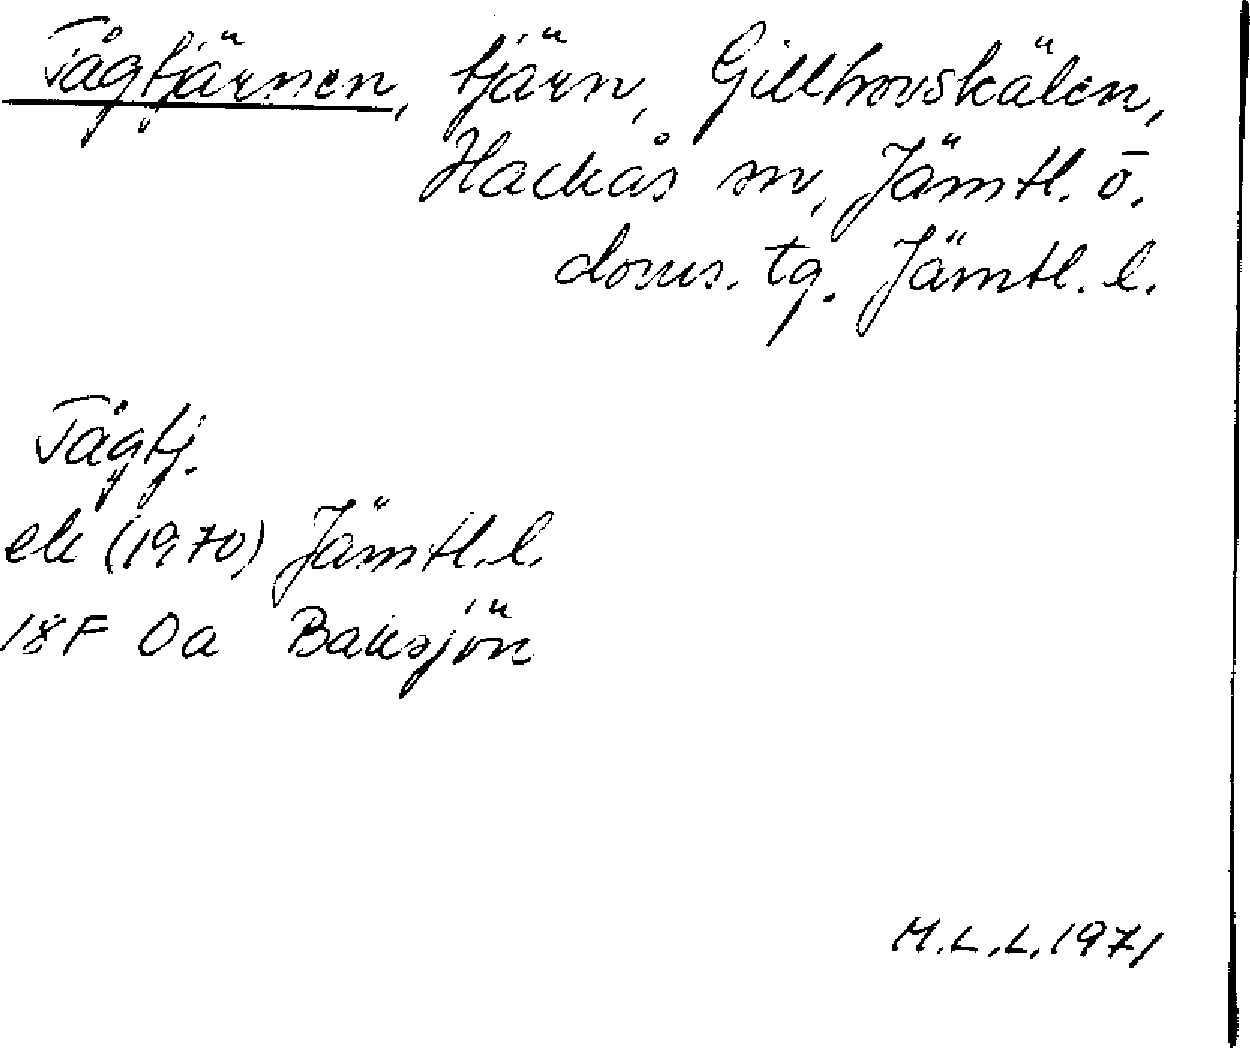 Tågtjärnen, tjärn, Gillhovskälen,
Hackås sn, Jämtl. ö.
doms. tg. Jämtl. l.
Tågtj.
ek (1970) Jämtl. l.
18F 0a Baksjön
M.L.L. 1971